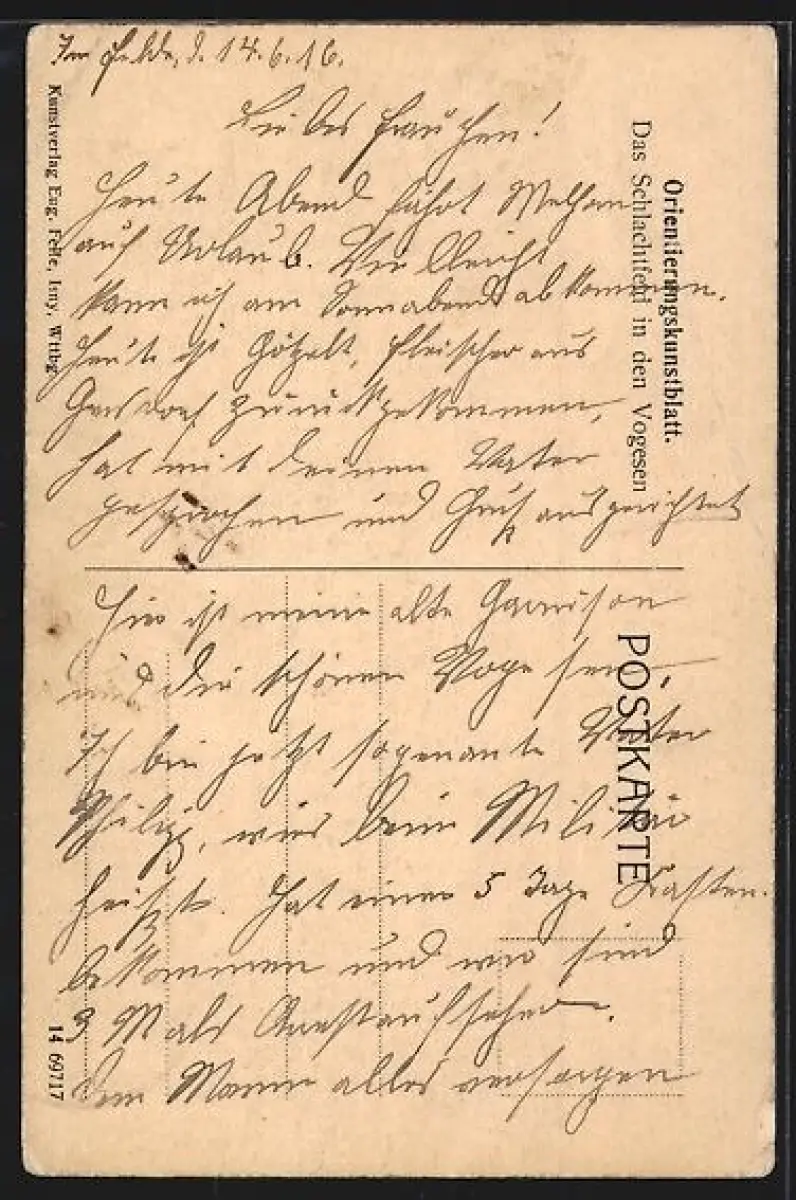 Im Felde, d. 14.6.16.
Liebes Frauchen!
Heute Abend fährt
auf Urlaub. Vielleicht
kann ich am Sonnabend abkommen.
Heute ist Götzelt, Fleischer aus
Gersdorf zurückgekommen,
hat mit deinen Vater
gesprochen und Gruß ausgerichtet
Hier ist meine alte Garnison
und die schönen Vogesen,
Ich bin jetzt sogenante Vater
Philipp, wies beim Militär
heißt. Hat einer 5 Tage Kasten
bekommen und wir sind
3 M als Arrestaufseher.
Dem Mann alles versorgen
Orientierungskunstblatt.
Das Schlachtfeld in den Vogesen
POSTKARTE
Kunstverlag Eug. Felle, Isny, Wttbg
14 69717